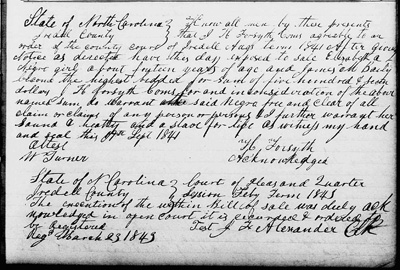 State of North Carolina } Know all men by these presents
Iredell County } That I H Forsyth Coms agreeably to an
order of the county court of Iredell Augt Term 1841 After Giving
Notice as directed have this day exposed to Sale Elizabeth a
Negro girl about fifteen years of age and James M Baily
became the highest bidder for sum of five Hundred & forty
dollars I H Forsyth Coms for and in consideration of the above
named sum, do warrant said negro free and Clear of all
claim or claims of any person or persons I further warrant her
Sound & healthy and a slave for life as witness my hand
and Seal this Sept 1841
Attest H Forsyth
W Turner Acknowledged
State of N Carolina } Court of pleas and Quarter
Iredell County } Session Feby Term 1843
The execution of the within Bill of Sale was duly ack
nowledged in open Court it is recorded & ordered to
be Registered Test J F Alexander Clk
Regd March 23 1843